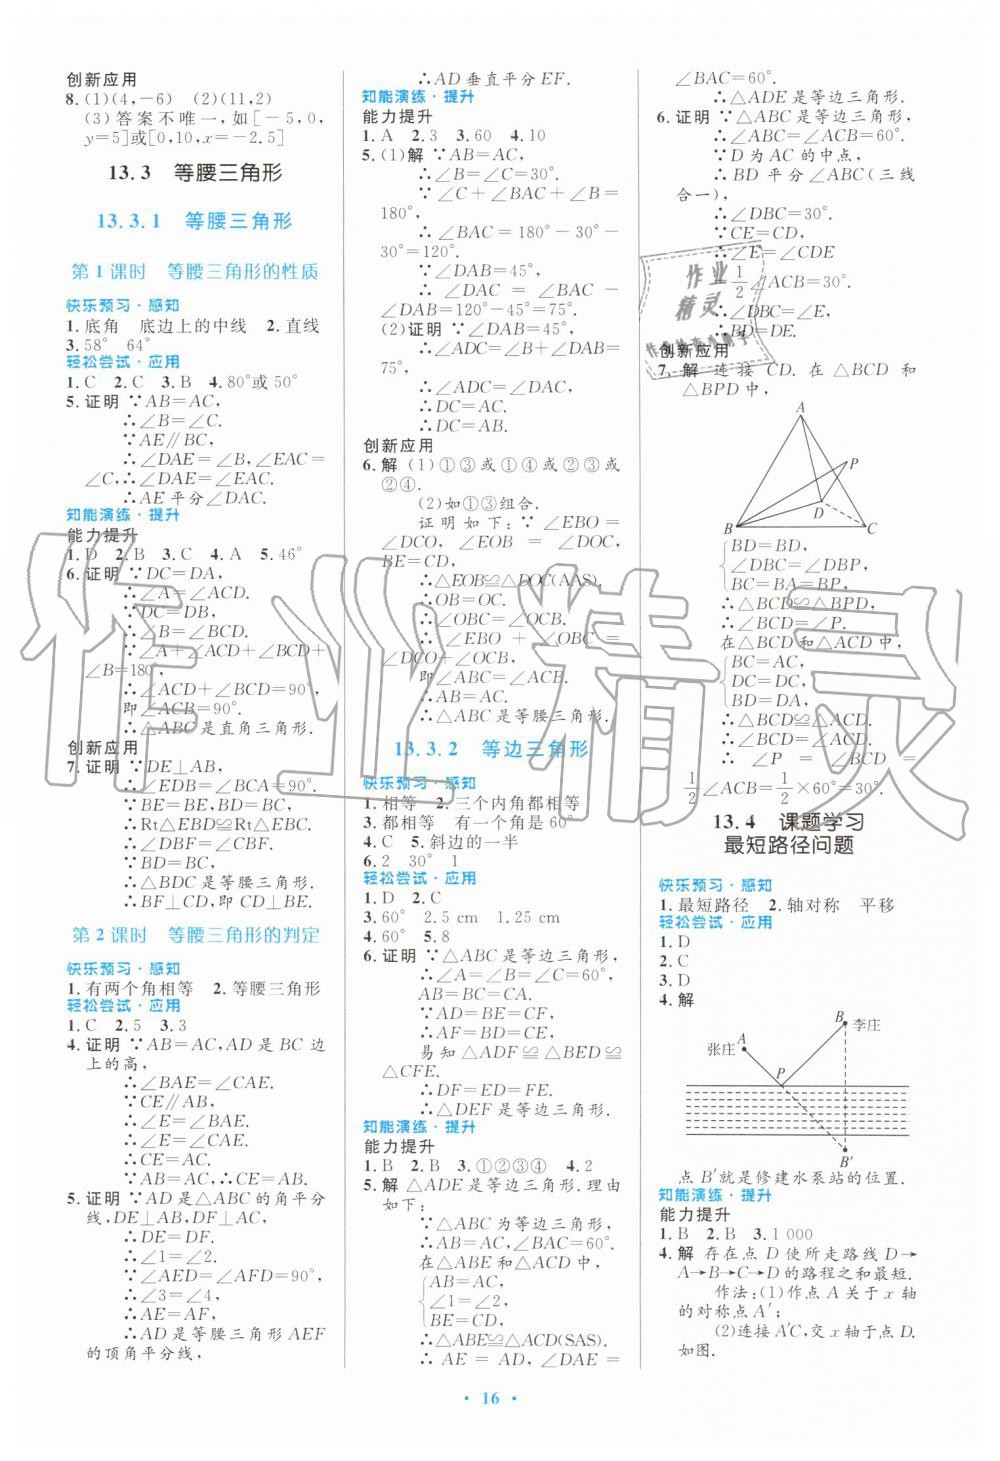 创新应用
8.(1)(4,-6)　(2)(11,2)
(3)答案不唯一,如[-5,0,
y=5]或[0,10,x=-2.5]
13.3　等腰三角形
13.3.1　等腰三角形
第1课时　等腰三角形的性质
快乐预习·感知
1.底角　底边上的中线　2.直线
3.58°　64°
轻松尝试·应用
1.C　2.C　3.B　4.80°或50°
5.证明 ∵AB=AC,
∴∠B=∠C.
∵AE∥BC,
∴∠DAE=∠B,∠EAC=
∠C,∴∠DAE=∠EAC.
∴AE平分∠DAC.
知能演练·提升
能力提升
1.D　2.B　3.C　4.A　5.46°
6.证明 ∵DC=DA,
∴∠A=∠ACD.
∵DC=DB,
∴∠B=∠BCD.
∵∠A+∠ACD+∠BCD+
∠B=180°,
∴∠ACD+∠BCD=90°,
即∠ACB=90°.
∴△ABC是直角三角形.
创新应用
7.证明 ∵DE⊥AB,
∴∠EDB=∠BCA=90°.
∵BE=BE,BD=BC,
∴Rt△EBD≌Rt△EBC.
∴∠DBF=∠CBF.
∴△BDC是等腰三角形.
∴BF⊥CD,即CD⊥BE.
第2课时　等腰三角形的判定
快乐预习·感知
1.有两个角相等　2.等腰三角形
轻松尝试·应用
1.C　2.5　3.3
4.证明 ∵AB=AC,AD是BC边
上的高,
∴∠BAE=∠CAE.
∵CE∥AB,
∴∠E=∠BAE.
∴∠E=∠CAE.
∴CE=AC.
∵AB=AC,∴CE=AB.
5.证明 ∵AD是△ABC的角平分
线,DE⊥AB,DF⊥AC,
∴DE=DF.
∴∠1=∠2.
∵∠AED=∠AFD=90°,
∴∠3=∠4.
∴AE=AF,
∴AD是等腰三角形AEF
的顶角平分线,
∴AD垂直平分EF.
知能演练·提升
能力提升
1.A　2.3　3.60　4.10
5.(1)解 ∵AB=AC,
∴∠B=∠C=30°.
∵∠C+∠BAC+∠B=
180°,
∴∠BAC=180°-30°-
30°=120°.
∵∠DAB=45°,
∴∠DAC=∠BAC-
∠DAB=120°-45°=75°.
(2)证明 ∵∠DAB=45°,
∴∠ADC=∠B+∠DAB=
75°,
∴∠ADC=∠DAC,
∴DC=AC.
∴DC=AB.
创新应用
6.解 (1)①③或①④或②③或
②④.
(2)如①③组合.
证明如下:∵∠EBO=
∠DCO,∠EOB=∠DOC,
BE=CD,
∴△EOB≌△DOC(AAS).
∴OB=OC.
∴∠OBC=∠OCB.
∴∠EBO+∠OBC=
∠DCO+∠OCB,
即∠ABC=∠ACB.
∴AB=AC.
∴△ABC是等腰三角形.
13.3.2　等边三角形
快乐预习·感知
1.相等　2.三个内角都相等
3.都相等　有一个角是60°
4.C　5.斜边的一半
6.2　30°　1
轻松尝试·应用
1.D　2.C
3.60°　2.5 cm　1.25 cm
4.60°　5.8
6.证明 ∵△ABC是等边三角形,
∴∠A=∠B=∠C=60°,
AB=BC=CA.
∵AD=BE=CF,
∴AF=BD=CE,
易知△ADF≌△BED≌
△CFE.
∴DF=ED=FE.
∴△DEF是等边三角形.
知能演练·提升
能力提升
1.B　2.B　3.①②③④　4.2
5.解 △ADE是等边三角形.理由
如下:
∵△ABC为等边三角形,
∴AB=AC,∠BAC=60°.
在△ABE和△ACD中,
AB=AC,
∠1=∠2,
BE=CD,
∴△ABE≌△ACD(SAS).
∴AE=AD,∠DAE=
∠BAC=60°.
∴△ADE是等边三角形.
6.证明 ∵△ABC是等边三角形,
∴∠ABC=∠ACB=60°.
∵D为AC的中点,
∴BD平分∠ABC(三线
合一),
∴∠DBC=30°.
∵CE=CD,
∴∠E=∠CDE
=1/2∠ACB=30°.
∴∠DBC=∠E,
∴BD=DE.
创新应用
7.解 连接CD.在△BCD和
△BPD中,
A
P
D
B
C
BD=BD,
∠DBC=∠DBP,
BC=BA=BP,
∴△BCD≌△BPD,
∴∠BCD=∠P.
在△BCD和△ACD中,
BC=AC,
DC=DC,
BD=DA,
∴△BCD≌△ACD.
∴∠P=∠BCD=
1/2∠ACB=1/2×60°=30°.
13.4　课题学习
最短路径问题
快乐预习·感知
1.最短路径　2.轴对称　平移
轻松尝试·应用
1.D
2.C
3.D
4.解
B 李庄
A
张庄
P
B′
点B′就是修建水泵站的位置.
知能演练·提升
能力提升
1.B　2.B　3.1 000
4.解 存在点D使所走路线D→
A→B→C→D的路程之和最短.
作法:(1)作点A关于x轴
的对称点A′;
(2)连接A′C,交x轴于点D.
如图.
· 16 ·
作业精灵
作业
精灵